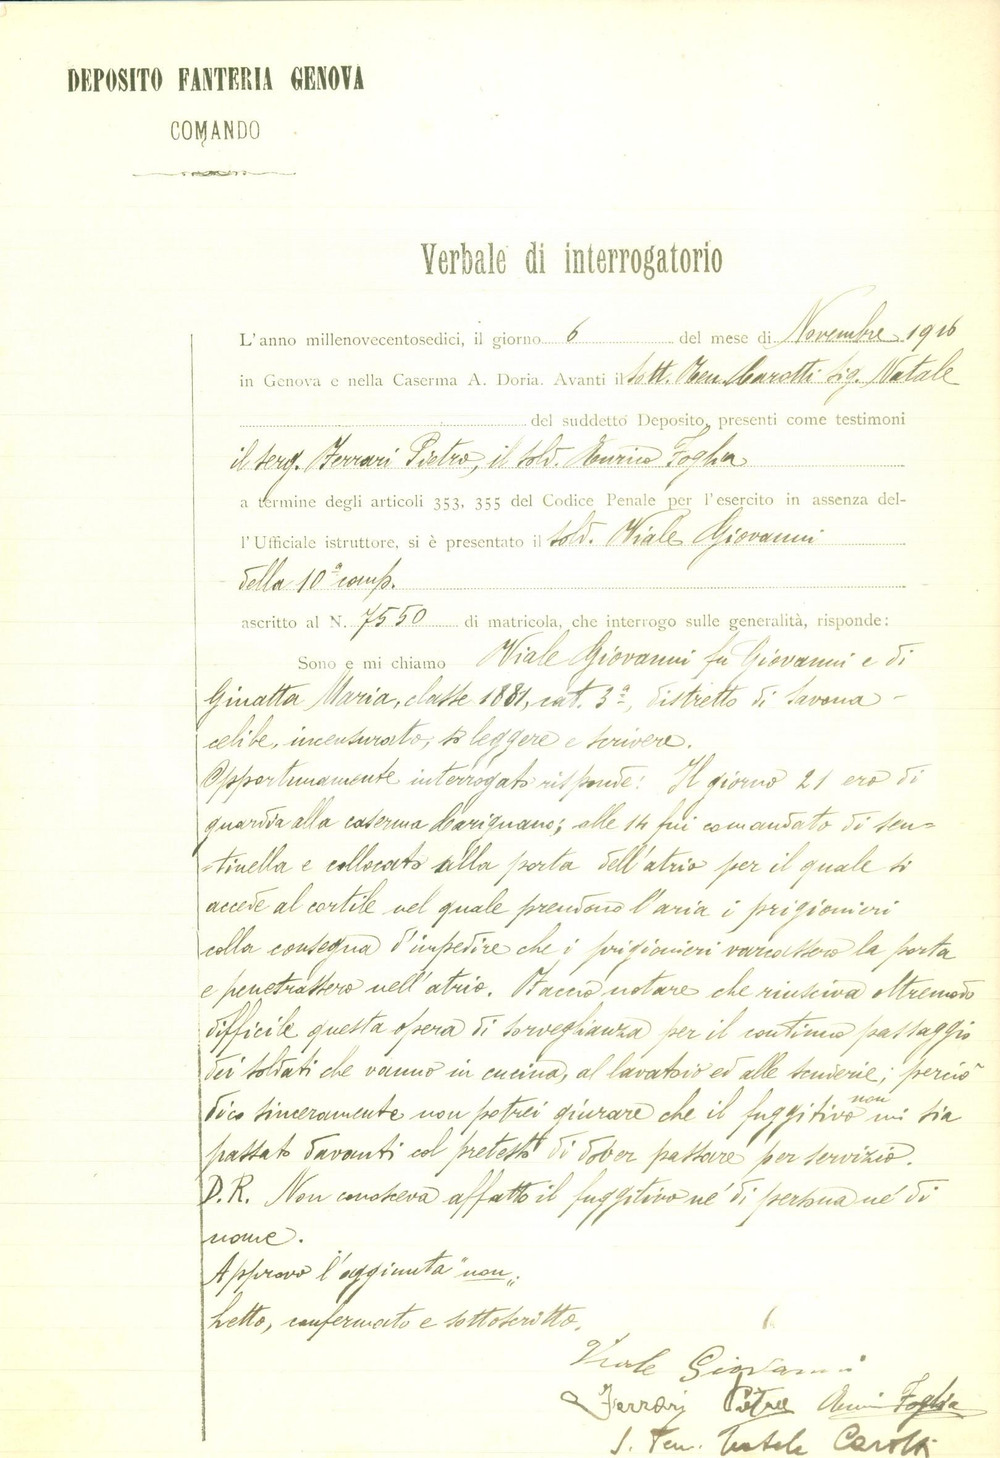 DEPOSITO FANTERIA GENOVA
COMANDO
Verbale di interrogatorio
L'anno millenovecentosedici, il giorno 6 del mese di Novembre 1916
in Genova e nella Caserma A. Doria. Avanti il Sott. Ten. Carotti Sig. Natale
del suddetto Deposito, presenti come testimoni
il serg. Ferrari Pietro, il sold. Enrico Foglia
a termine degli articoli 353, 355 del Codice Penale per l'esercito in assenza del-
l'Ufficiale istruttore, si è presentato il sold. Viale Giovanni
della 10ª comp.
ascritto al N. 7550 di matricola, che interrogo sulle generalità, risponde:
Sono e mi chiamo Viale Giovanni fu Giovanni e di
Ginatta Maria, classe 1881, cat. 3ª, distretto di Savona -
celibe, incensurato, so leggere e scrivere.
Opportunamente interrogato risponde: Il giorno 21 ero di
guardia alla caserma Carignano; alle 14 fui comandato di sen=
=tinella e collocato alla porta dell'atrio per il quale si
accede al cortile nel quale prendono l'aria i prigionieri
colla consegna d'impedire che i prigionieri varcassero la porta
e penetrassero nell'atrio. Faccio notare che riusciva oltremodo
difficile questa opera di sorveglianza per il continuo passaggio
dei soldati che vanno in cucina, al lavatoio ed alle scuderie; perciò
dico sinceramente non potrei giurare che il fuggitivo non mi sia
passato davanti col pretesto di dover passare per servizio.
D.R. Non conosceva affatto il fuggitivo nè di persona nè di
nome.
Approvo l'aggiunta "non"
Letto, confermato e sottoscritto.
Viale Giovanni
Ferrari Pietro Foglia
S. Ten. Natale Carotti